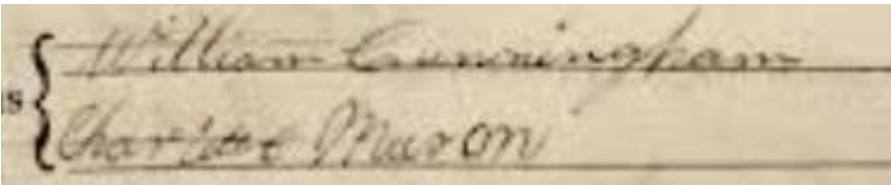 William Cunningham
s Charlotte Mason